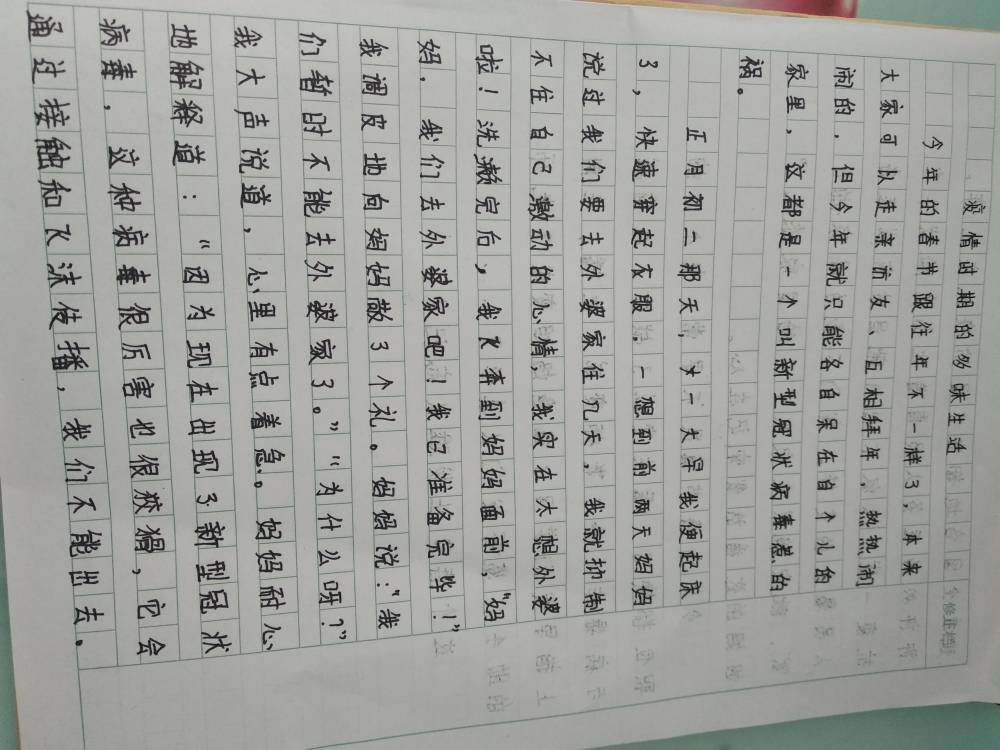 疫情时期的多味生活
今年的春节跟往年不一样了,本来
大家可以走亲访友、互相拜年,热热闹
闹的,但今年就只能各自呆在自个儿的
家里,这都是一个叫新型冠状病毒惹的
祸。
正月初二那天,一大早我便起床
了,快速穿起衣服。一想到前两天妈妈
说过我们要去外婆家住几天,我就抑制
不住自己激动的心情,我实在太想外婆
啦!洗漱完后,我飞奔到妈妈面前,“妈
妈,我们去外婆家吧!我已准备完毕!”
我调皮地向妈妈敬了个礼。妈妈说:“我
们暂时不能去外婆家了。”“为什么呀?”
我大声说道,心里有点着急。妈妈耐心
地解释道:“因为现在出现了新型冠状
病毒,这种病毒很厉害也很狡猾,它会
通过接触和飞沫传播,我们不能出去。